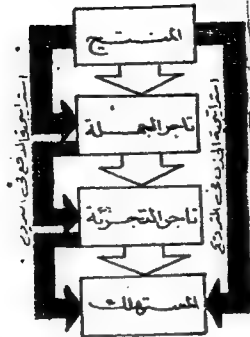 المنتج
تاجر الجملة
تاجر التجزئة
المستهلك
استراتيجية الدفع فى الترويج
استراتيجية الجذب فى الترويج